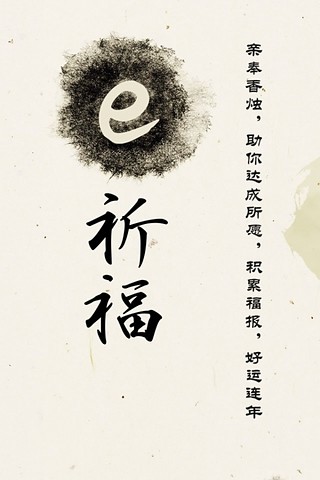 e
祈福
亲奉香烛，助你达成所愿，积累福报，好运连年